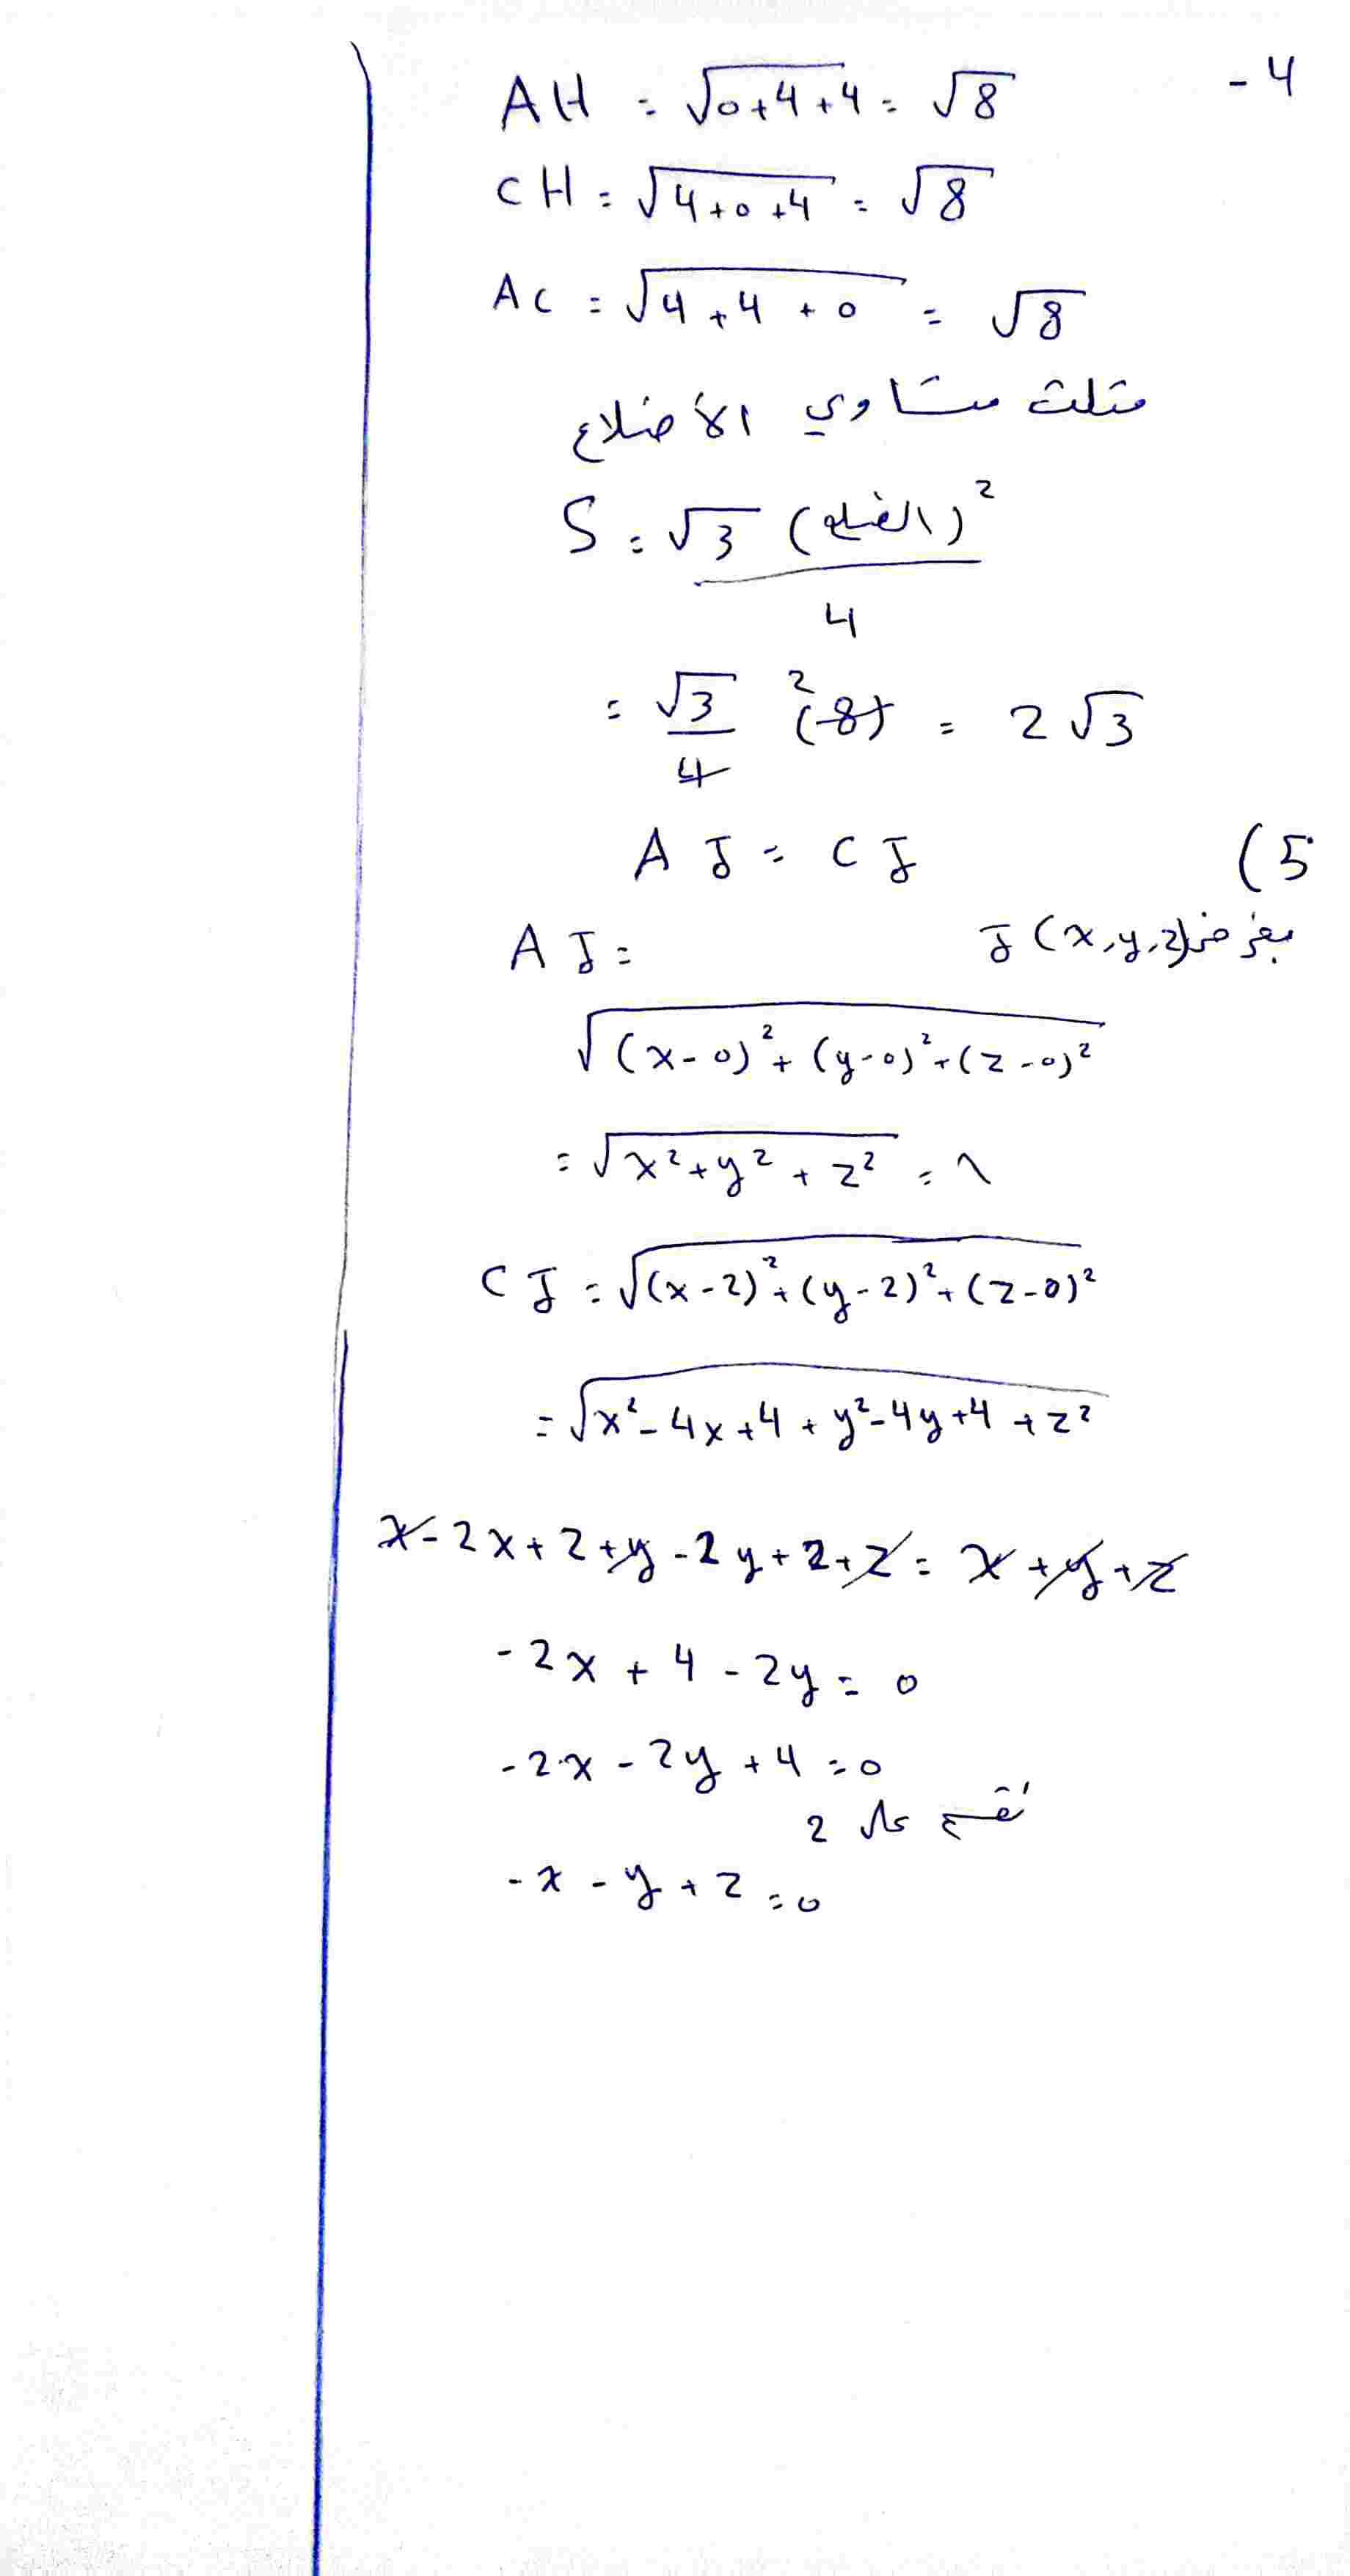 4 -
AH = √0+4+4 = √8
CH = √4+0+4 = √8
AC = √4+4+0 = √8
مثلث متساوي الأضلاع
S = √3 (الضلع)² / 4
= √3/4 (8)² = 2√3
5) AJ = CJ
بفرض J(x,y,z)
AJ =
√(x-0)²+(y-0)²+(z-0)²
= √x²+y²+z² =
CJ = √(x-2)²+(y-2)²+(z-0)²
= √x²-4x+4+y²-4y+4+z²
x-2x+2+y-2y+2+z = x+y+z
-2x+4-2y=0
-2x-2y+4=0
نقسم على 2
-x-y+2=0